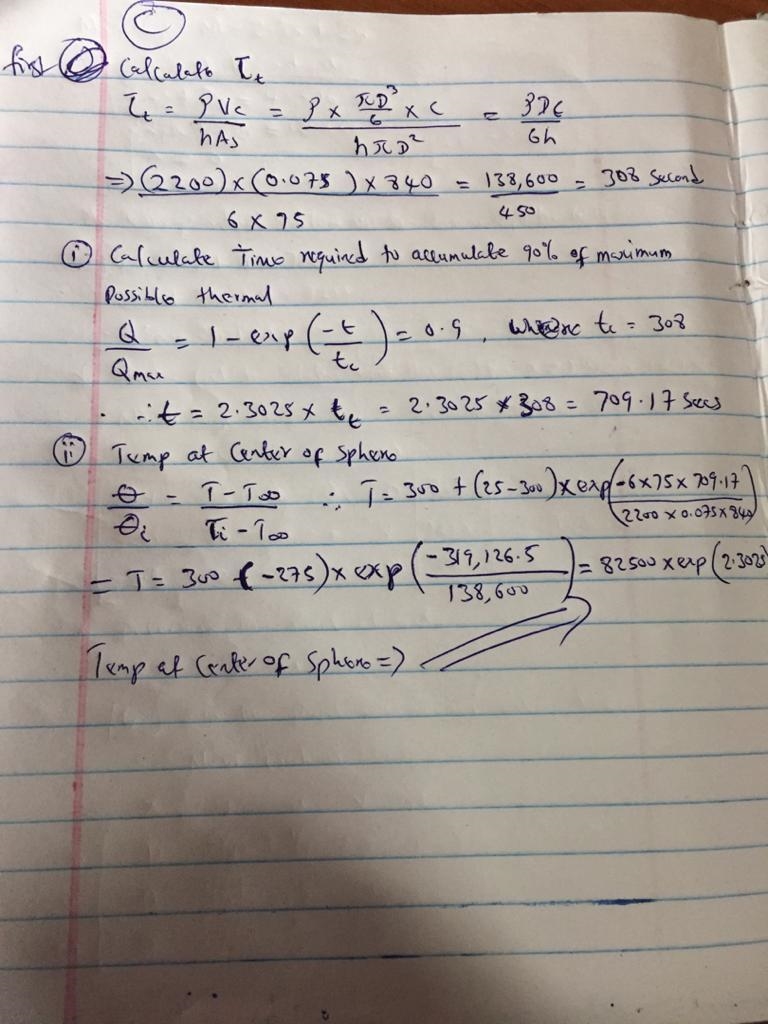 C
first Calculate τt
τt = ρVc / hAs = ρ × πD³/6 × C / hπD² = ρDC / 6h
⇒ (2200) × (0.075) × 840 / 6 × 75 = 138,600 / 450 = 308 Second
(i) Calculate Time required to accumulate 90% of maximum
Possible thermal
Q / Qmax = 1 - exp(-t / tc) = 0.9, where tc = 308
∴ t = 2.3025 × tt = 2.3025 × 308 = 709.17 Secs
(ii) Temp at Center of Sphere
θ / θi = T - T∞ / Ti - T∞ ∴ T = 300 + (25-300) × exp(-6×75×709.17 / 2200×0.075×840)
= T = 300 (-275) × exp(-319,126.5 / 138,600) = 82500 × exp(2.3025
Temp at Center of Sphere ⇒